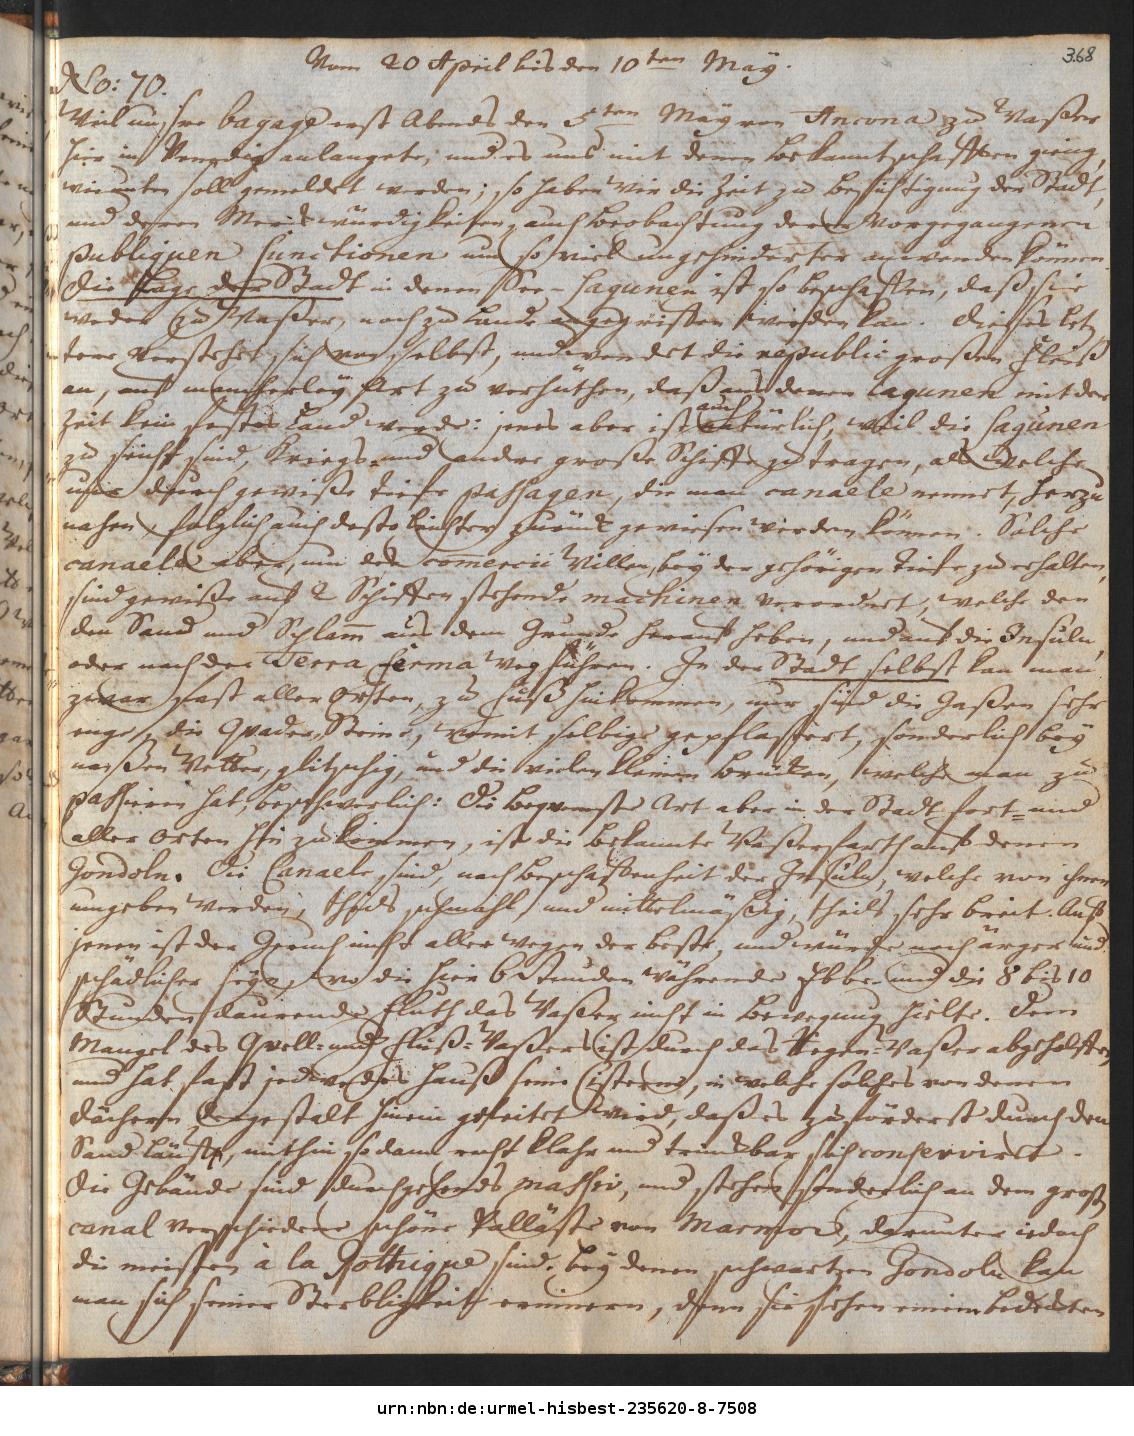 Vom 20 April bis den 10ten Maÿ.
368
No: 70.
Weil unsere bagage erst Abends den 5ten Maÿ von Ancona zu Waßer
hier in Venedig anlangete, und es uns mit denen bekanntschafften gieng,
wie unten soll gemeldet werden; so haben wir die Zeit zu besichtigung der Stadt,
und deren Merckwürdigkeiten, auch beobachtung derer vorgegangenen
publiquen functionen um so viel ungehinderter anwenden können.
Die Lage der Stadt in denen See-Lagunen ist so beschaffen, daß sie
weder zu Waßer, noch zu Lande angegriffen werden kan. Dieses letz
tere verstehet sich von selbst, und wendet die republic großen Fleiß
an, auf mancherleÿ Art zu verhüthen, daß aus denen Lagunen mit der
Zeit kein festes Land werde: jenes aber ist auch natürlich, weil die Lagunen
zu seicht sind, Kriegs- und andre große Schiffe zu tragen, als welche
nur durch gewiße tiefe passagen, die man canaele nennet, herzu
nahen, folglich auch desto leichter zurück gewiesen werden können. Solche
canaele aber, um des comercii willen, beÿ der gehörigen Tiefe zu erhalten,
sind gewiße auf 2 Schiffen stehende machinen verordnet, welche den
den Sand und Schlam aus dem Grunde herauf heben, und auf die Insuln,
oder nach der Terra ferma weg führen. In der Stadt selbst kan man
zwar fast aller Orten, zu Fuß hinkommen, nur sind die Gaßen sehr
enge, die Quader-Steine, womit selbige gepflastert, sonderlich beÿ
naßen Wetter, glitschig, und die vielen kleinen brücken, welche man zu
passiren hat, beschwerlich: Die bequemste Art aber in der Stadt fort- und
aller Orten hin zu kommen, ist die bekannte Waßerfarth auf denen
Gondoln. Die Canaele sind, nach beschaffenheit der Insuln, welche von ihnen
umgeben werden, theils schmahl und mittelmäßig, theils sehr breit. Auf
jenen ist der Geruch nicht aller wegen der beste, und würde noch ärger und
schädlicher seÿn, wo die hier 6 Stunden währende Ebbe- und die 8 bis 10
Stunden daurende Fluth das Waßer nicht in bewegung hielte. Dem
Mangel des Quell- und Fluß-Waßers ist durch das Regen-Waßer abgeholffen,
und hat fast jedwedes Hauß seine Cisterne, in welche solches von denen
Dächern dergestalt hinein geleitet wird, daß es zuförderst durch den
Sand läufft, mithin sodann recht klahr und trinckbar sich conserviret.
Die Gebäude sind durchgehends massiv, und stehen sonderlich an dem groß
canal verschiedene schöne Palläste von Marmor, darunter iedoch
die meisten à la Gothique sind. beÿ denen schwartzen Gondoln kan
man sich seiner Sterblichkeit erinnern, denn sie sehen einem bedeckten
urn:nbn:de:urmel-hisbest-235620-8-7508